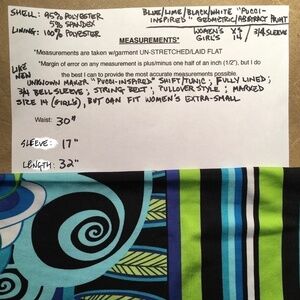 SHELL: 95% POLYESTER
5% SPANDEX
LINING: 100% POLYESTER
BLUE/LIME/BLACK/WHITE "PUCCI-
INSPIRED" GEOMETRIC/ABSTRACT PRINT
WOMEN'S XS / 3/4 SLEEVE
GIRL'S 14
MEASUREMENTS*
*Measurements are taken w/garment UN-STRETCHED/LAID FLAT
*Margin of error on any measurement is plus/minus one half of an inch (1/2"), but I do
the best I can to provide the most accurate measurements possible.
LIKE
NEW
UNKNOWN MAKER "PUCCI-INSPIRED" SHIFT/TUNIC; FULLY LINED;
3/4 BELL SLEEVE; STRING BELT; PULLOVER STYLE; MARKED
SIZE 14 (GIRL'S), BUT CAN FIT WOMEN'S EXTRA-SMALL
Waist: 30"
SLEEVE: 17"
LENGTH: 32"